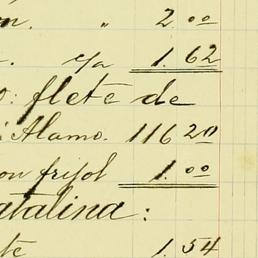 n. " 2 00
. c/a 1. 62
o: flete de
Alamo. 116 20
on frijol 1. 00
atalina:
te 1. 54